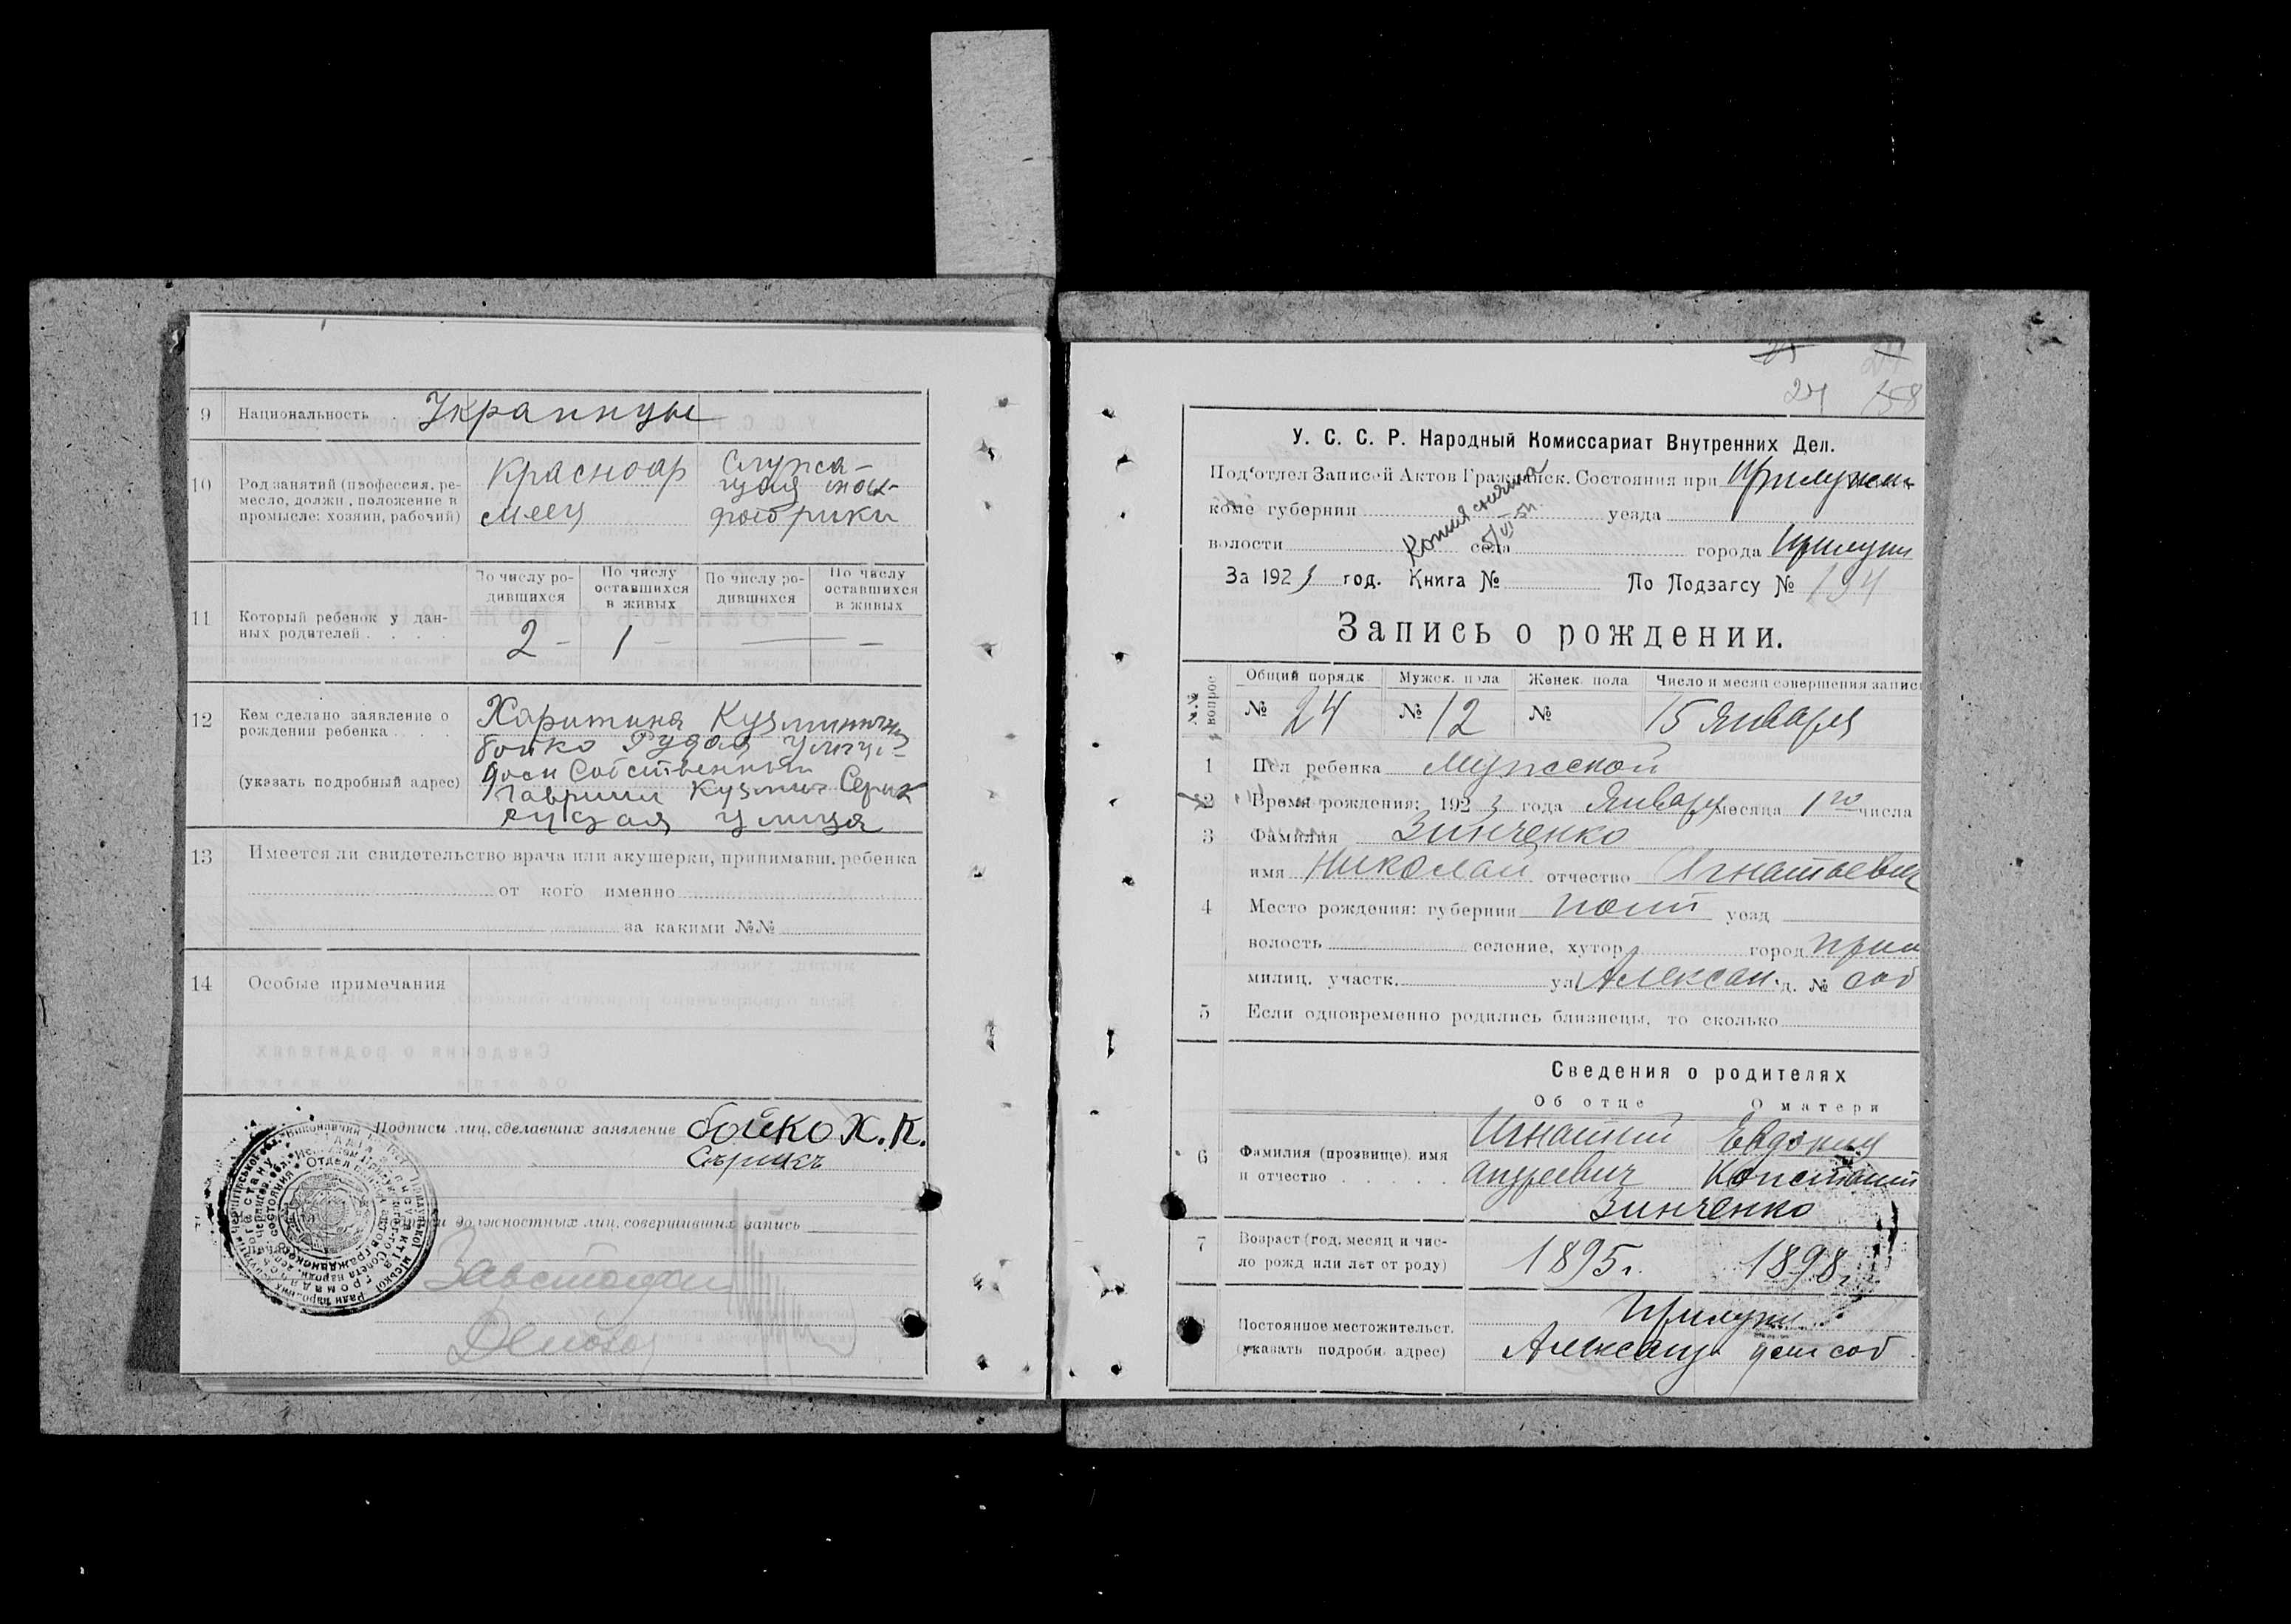 9 Национальность Украинцы
10 Род занятий (профессия, ре-
месло, должн., положение в
промысле: хозяин, рабочий)
Красноар
меец
Служа-
щая
фабрики
11 Который ребенок у дан-
ных родителей . . . .
По числу ро-
дившихся
По числу
оставшихся
в живых
По числу ро-
дившихся
По числу
оставшихся
в живых
2 - 1 - — —
12 Кем сделано заявление о
рождении ребенка . . .
(указать подробный адрес)
Харитина Кузминична
бойко Рудая улица
дом Собственный
Гавриил Кузмич Серик
Рудая улица
13 Имеется ли свидетельство врача или акушерки, принимавш. ребенка
от кого именно
за какими №№
14 Особые примечания
Подписи лиц, сделавших заявление бойко Х. К.
Сърикъ
должностных лиц, совершивших запись
24 158
У. С. С. Р. Народный Комиссариат Внутренних Дел.
Под'отдел Записей Актов Гражданск. Состояния при Прилукском
коме губернии уезда
Копия снята
волости села города Прилуки
За 1923 год. Книга № По Подзагсу № 194
Запись о рождении.
№№ вопрос
Общий порядк Мужск. пола Женск. пола Число и месяц совершения записи
№ 24 № 12 № 15 Января
1 Пол ребенка Мужской
2 Время рождения: 1923 года Января месяца 1го числа
3 Фамилия Зинченко
имя Николай отчество Игнатьевич
4 Место рождения: губерния Полт уезд
волость селение, хутор город Прил
милиц. участк. ул Алексан. д. № соб
5 Если одновременно родились близнецы, то сколько
Сведения о родителях
Об отце О матери
6 Фамилия (прозвище), имя
и отчество . . . . .
Игнатий Евдокия
Андреевич Констант
Зинченко
7 Возраст (год, месяц и чис-
ло рожд или лет от роду)
1895 г. 1898 г.
Постоянное местожительст.
(указать подробн. адрес)
Прилуки
Александр дом соб